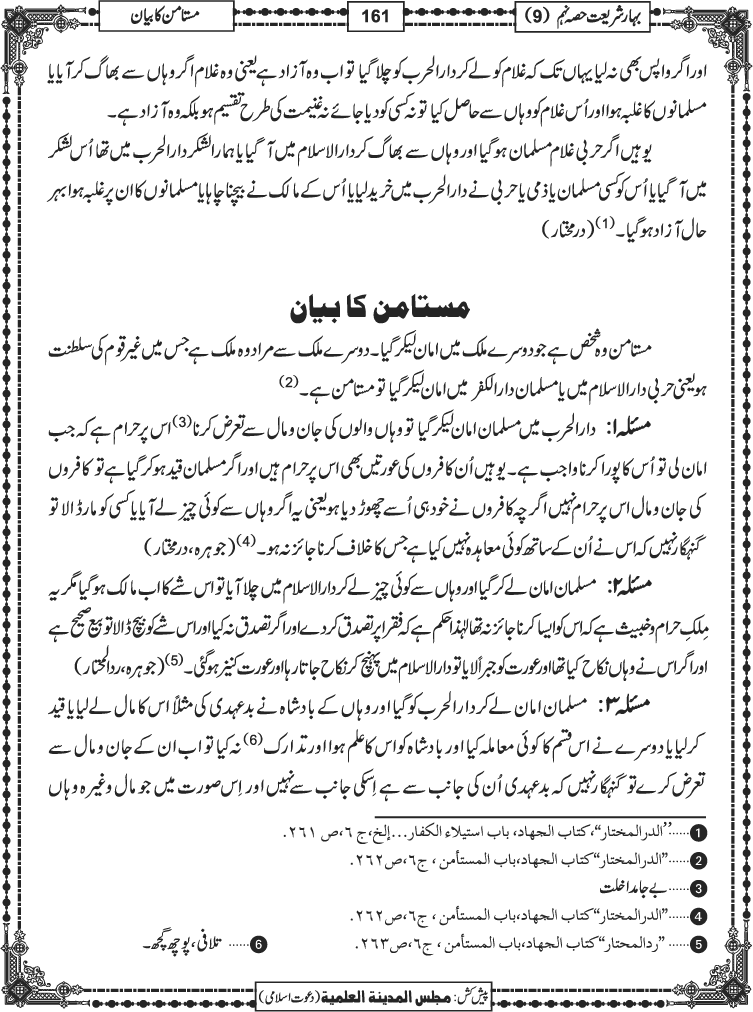 بہارِ شریعت حصہ نہم (9)
161
مستامن کا بیان
اور اگر واپس بھی نہ لیا یہاں تک کہ غلام کو لے کر دار الحرب کو چلا گیا تو اب وہ آزاد ہے یعنی وہ غلام اگر وہاں سے بھاگ کر آیا یا
مسلمانوں کا غلبہ ہوا اور اُس غلام کو وہاں سے حاصل کیا تو نہ کسی کو دیا جائے نہ غنیمت کی طرح تقسیم ہو بلکہ وہ آزاد ہے۔
یوہیں اگر حربی غلام مسلمان ہو گیا اور وہاں سے بھاگ کر دار الاسلام میں آ گیا یا ہمارا لشکر دار الحرب میں تھا اُس لشکر
میں آ گیا یا اُس کو کسی مسلمان یا ذمی یا حربی نے دار الحرب میں خرید لیا یا اُس کے مالک نے بیچنا چاہا یا مسلمانوں کا ان پر غلبہ ہوا بہر
حال آزاد ہو گیا۔(1) (درمختار)
مستامن کا بیان
مستامن وہ شخص ہے جو دوسرے ملک میں امان لیکر گیا۔ دوسرے ملک سے مراد وہ ملک ہے جس میں غیر قوم کی سلطنت
ہو یعنی حربی دار الاسلام میں یا مسلمان دار الکفر میں امان لیکر گیا تو مستامن ہے۔(2)
مسئلہ ۱: دار الحرب میں مسلمان امان لیکر گیا تو وہاں والوں کی جان و مال سے تعرض کرنا(3) اس پر حرام ہے کہ جب
امان لی تو اُس کا پورا کرنا واجب ہے۔ یوہیں اُن کافروں کی عورتیں بھی اس پر حرام ہیں اور اگر مسلمان قید ہو کر گیا ہے تو کافروں
کی جان و مال اس پر حرام نہیں اگر چہ کافروں نے خود ہی اُسے چھوڑ دیا ہو یعنی یہ اگر وہاں سے کوئی چیز لے آیا یا کسی کو مار ڈالا تو
گنہگار نہیں کہ اس نے اُن کے ساتھ کوئی معاہدہ نہیں کیا ہے جس کا خلاف کرنا جائز نہ ہو۔(4) (جوہرہ، درمختار)
مسئلہ ۲: مسلمان امان لے کر گیا اور وہاں سے کوئی چیز لے کر دار الاسلام میں چلا آیا تو اس شے کا اب مالک ہو گیا مگر یہ
مِلک حرام و خبیث ہے کہ اس کو ایسا کرنا جائز نہ تھا لہٰذا حکم ہے کہ فقرا پر تصدق کر دے اور اگر تصدق نہ کیا اور اس شے کو بیچ ڈالا تو بیع صحیح ہے
اور اگر اس نے وہاں نکاح کیا تھا اور عورت کو جبراً لایا تو دار الاسلام میں پہنچ کر نکاح جاتا رہا اور عورت کنیز ہو گئی۔(5) (جوہرہ، ردالمحتار)
مسئلہ ۳: مسلمان امان لے کر دار الحرب کو گیا اور وہاں کے بادشاہ نے بدعہدی کی مثلاً اس کا مال لے لیا یا قید
کر لیا یا دوسرے نے اس قسم کا کوئی معاملہ کیا اور بادشاہ کو اس کا علم ہوا اور تدارک(6) نہ کیا تو اب ان کے جان و مال سے
تعرض کرے تو گنہگار نہیں کہ بدعہدی اُن کی جانب سے ہے اِسکی جانب سے نہیں اور اِس صورت میں جو مال وغیرہ وہاں
1 ......"الدرالمختار"، کتاب الجهاد، باب استیلاء الکفار...إلخ، ج ٦، ص ٢٦١.
2 ......"الدرالمختار" کتاب الجهاد، باب المستأمن ، ج٦، ص٢٦٢.
3 ......بے جا مداخلت
4 ......"الدرالمختار" کتاب الجهاد، باب المستأمن ، ج٦، ص٢٦٢.
5 ...... "ردالمحتار" کتاب الجهاد، باب المستأمن ، ج٦، ص٢٦٣.
6 ...... تلافی، پوچھ گچھ۔
پیش کش: مجلس المدینة العلمیة (دعوت اسلامی)